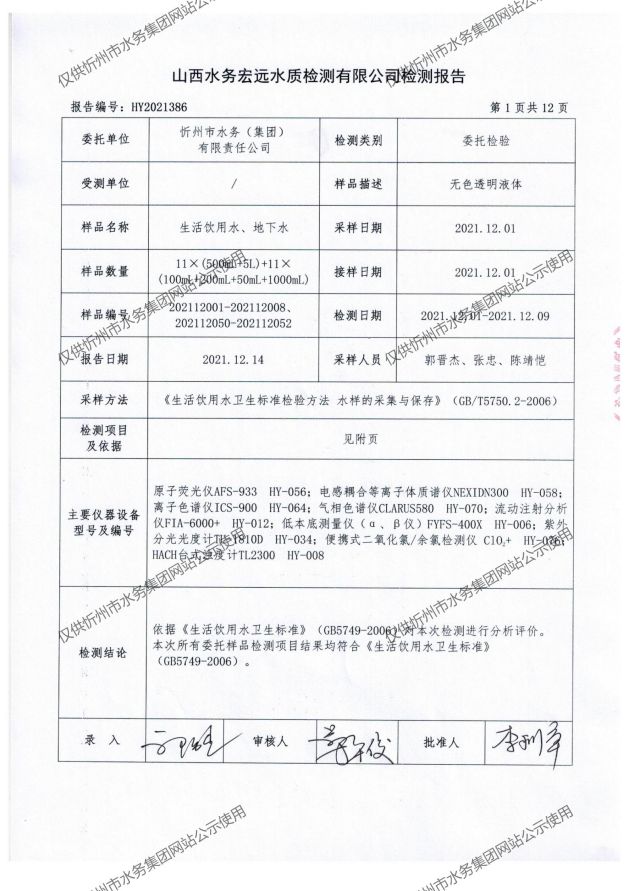 仅供忻州市水务集团网站公示使用
仅供忻州市水务集团网站公示使用
山西水务宏远水质检测有限公司检测报告
报告编号：HY2021386 第 1 页共 12 页
委托单位 忻州市水务（集团）有限责任公司 检测类别 委托检验
受测单位 / 样品描述 无色透明液体
样品名称 生活饮用水、地下水 采样日期 2021.12.01
样品数量 11×(500mL+5L)+11×(100mL+200mL+50mL+1000mL) 接样日期 2021.12.01
样品编号 202112001-202112008、202112050-202112052 检测日期 2021.12.01-2021.12.09
仅供忻州市水务集团网站公示使用
仅供忻州市水务集团网站公示使用
报告日期 2021.12.14 采样人员 郭晋杰、张忠、陈靖恺
采样方法 《生活饮用水卫生标准检验方法 水样的采集与保存》（GB/T5750.2-2006）
检测项目及依据 见附页
主要仪器设备型号及编号
原子荧光仪AFS-933 HY-056；电感耦合等离子体质谱仪NEXIDN300 HY-058；
离子色谱仪ICS-900 HY-064；气相色谱仪CLARUS580 HY-070；流动注射分析
仪FIA-6000+ HY-012；低本底测量仪（α、β仪）FYFS-400X HY-006；紫外
分光光度计TU-1810D HY-034；便携式二氧化氯/余氯检测仪 ClO₂+ HY-076；
HACH台式浊度计TL2300 HY-008
仅供忻州市水务集团网站公示使用
仅供忻州市水务集团网站公示使用
检测结论
依据《生活饮用水卫生标准》（GB5749-2006）对本次检测进行分析评价。
本次所有委托样品检测项目结果均符合《生活饮用水卫生标准》
（GB5749-2006）。
录 入 审核人 批准人
仅供忻州市水务集团网站公示使用
仅供忻州市水务集团网站公示使用